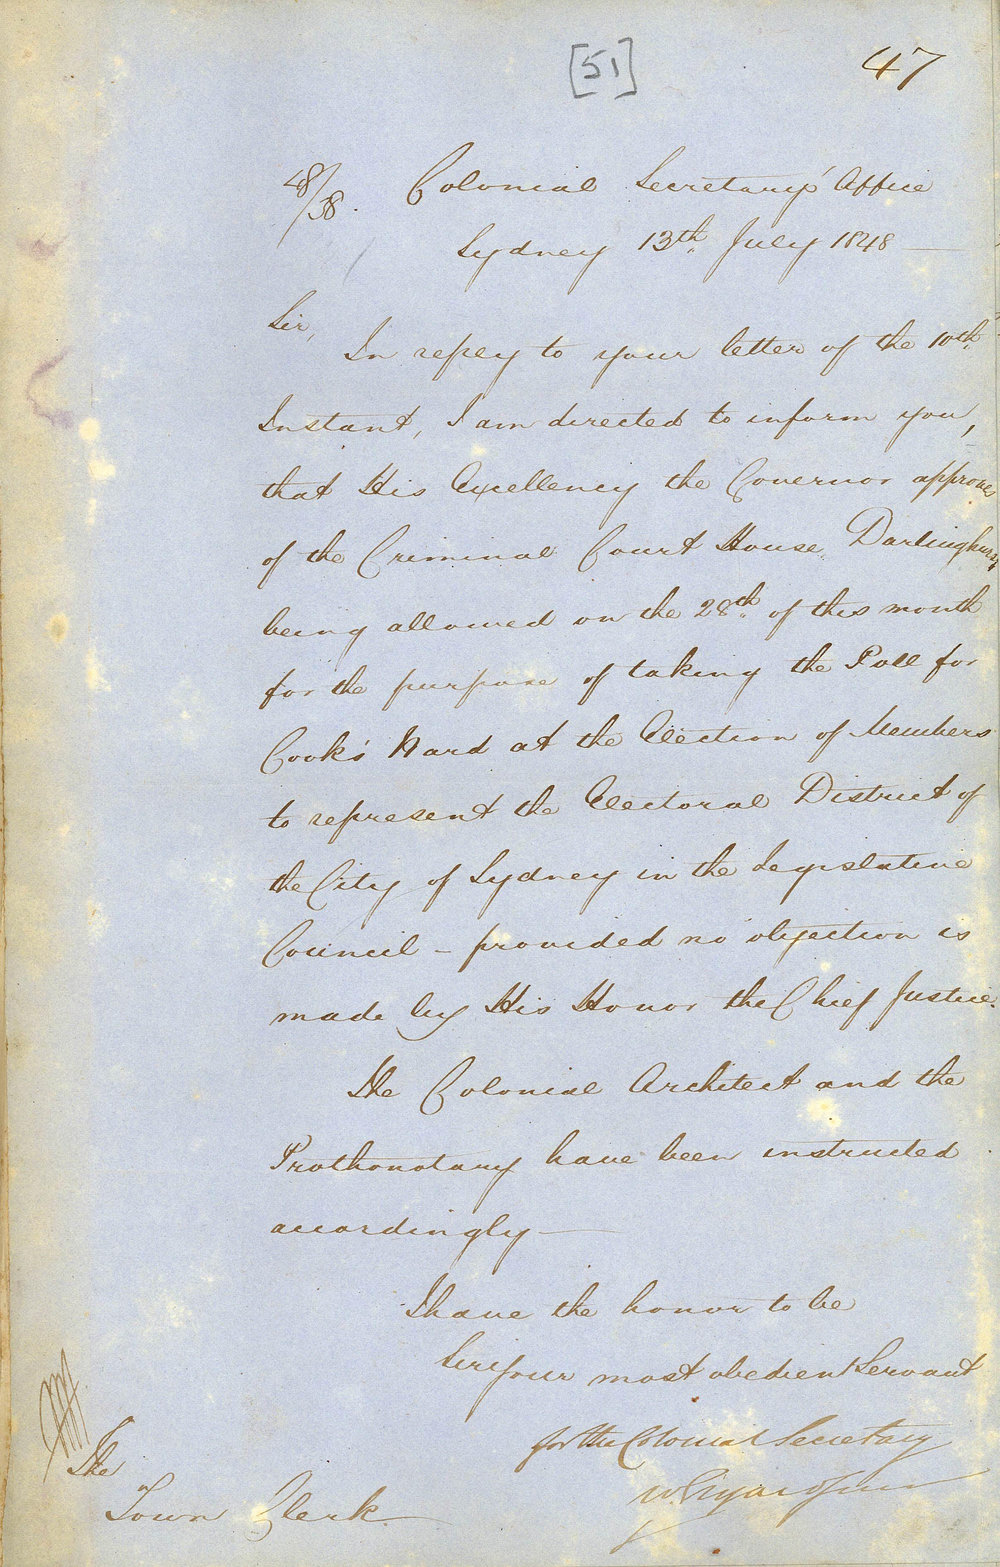 [51]
47
48/38. Colonial Secretary's Office
Sydney 13th July 1848
Sir,
In reply to your letter of the 10th
Instant, I am directed to inform you,
that His Excellency the Governor approves
of the Criminal Court House Darlinghurst
being allowed on the 28th of this month
for the purpose of taking the Poll for
Cook's Ward at the Election of Members
to represent the Electoral District of
the City of Sydney in the Legislative
Council – provided no objection is
made by His Honor the Chief Justice.
The Colonial Architect and the
Prothonotary have been instructed
accordingly —
I have the honor to be
Sir Your most obedient Servant
for the Colonial Secretary
W. Elyard Junr
The
Town Clerk